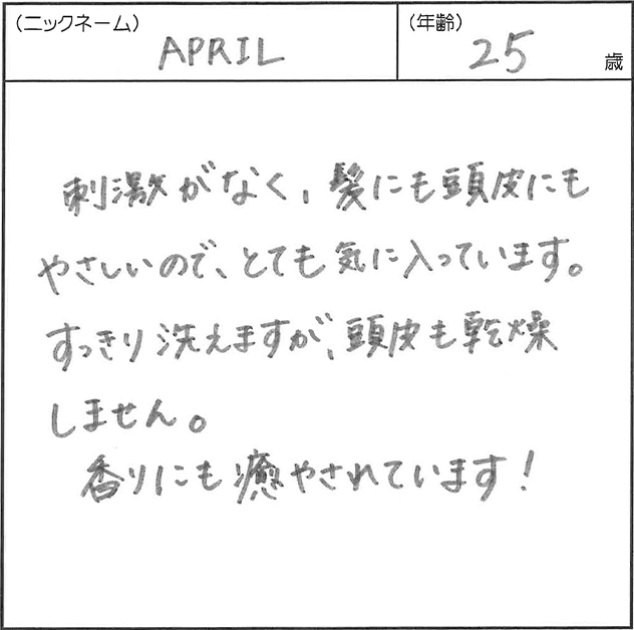 (ニックネーム) APRIL (年齢) 25 歳
刺激がなく、髪にも頭皮にも
やさしいので、とても気に入っています。
すっきり洗えますが、頭皮も乾燥
しません。
香りにも癒やされています!